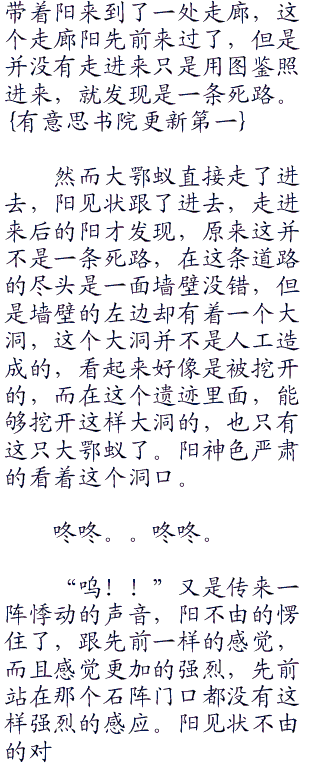 带着阳来到了一处走廊，这
个走廊阳先前来过了，但是
并没有走进来只是用图鉴照
进来，就发现是一条死路。
{有意思书院更新第一}
然而大鄂蚁直接走了进
去，阳见状跟了进去，走进
来后的阳才发现，原来这并
不是一条死路，在这条道路
的尽头是一面墙壁没错，但
是墙壁的左边却有着一个大
洞，这个大洞并不是人工造
成的，看起来好像是被挖开
的，而在这个遗迹里面，能
够挖开这样大洞的，也只有
这只大鄂蚁了。阳神色严肃
的看着这个洞口。
咚咚。。咚咚。
“呜！！”又是传来一
阵悸动的声音，阳不由的愣
住了，跟先前一样的感觉，
而且感觉更加的强烈，先前
站在那个石阵门口都没有这
样强烈的感应。阳见状不由
的对